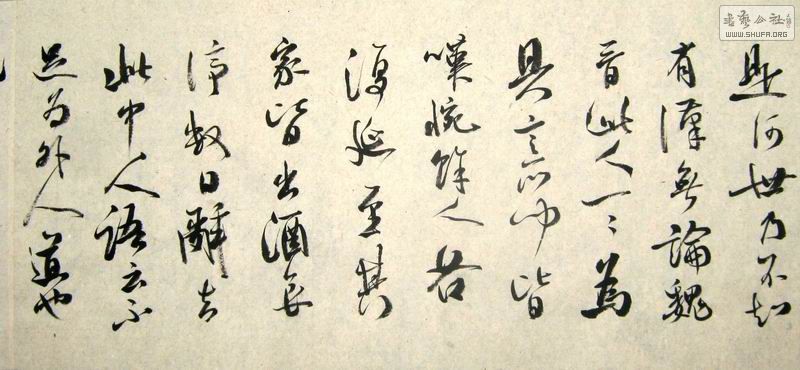 是何世乃不知
有漢無論魏
晉此人一〻為
具言所聞皆
嘆惋餘人各
復延至其
家皆出酒食
停數日辭去
此中人語云不
足為外人道也
書藝公社
WWW.SHUFA.ORG